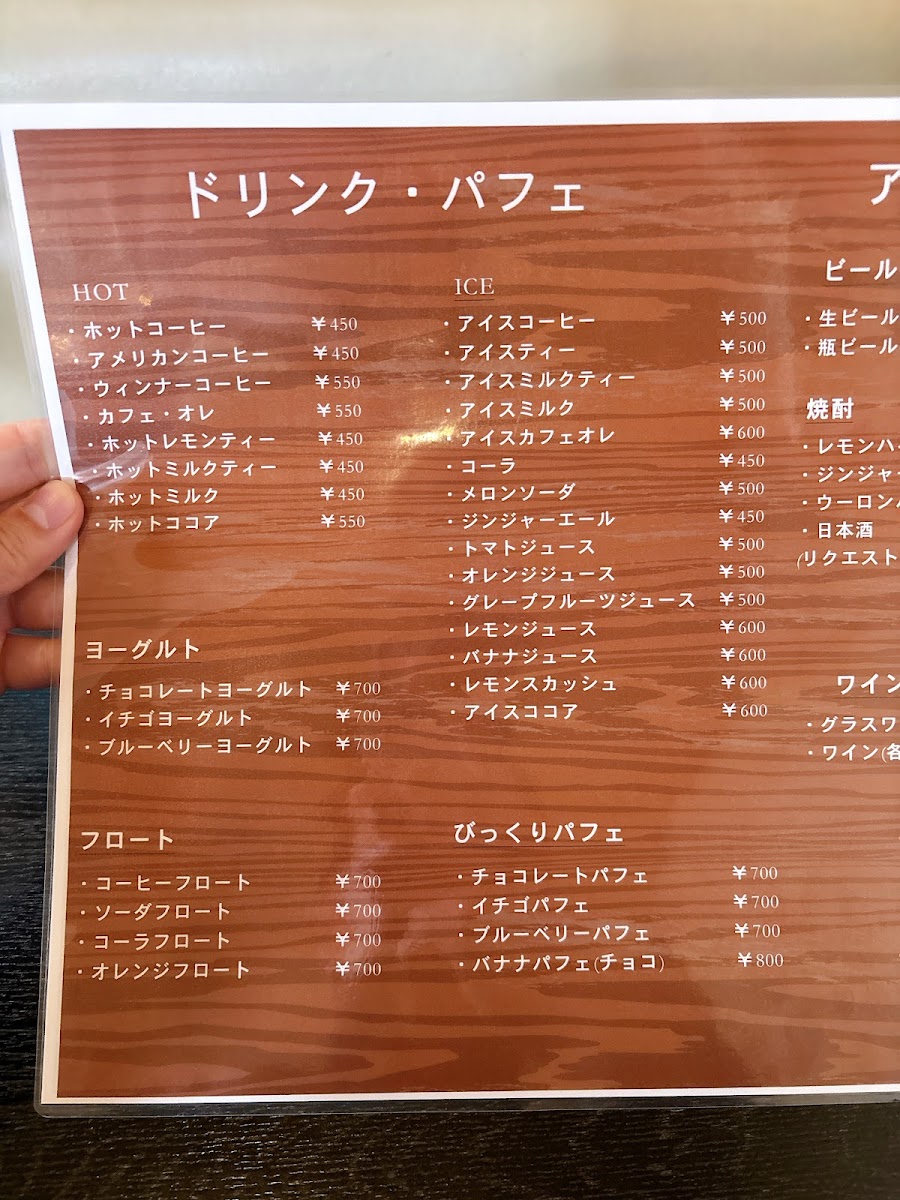 ドリンク・パフェ
HOT
・ホットコーヒー ¥450
・アメリカンコーヒー ¥450
・ウィンナーコーヒー ¥550
・カフェ・オレ ¥550
・ホットレモンティー ¥450
・ホットミルクティー ¥450
・ホットミルク ¥450
・ホットココア ¥550
ヨーグルト
・チョコレートヨーグルト ¥700
・イチゴヨーグルト ¥700
・ブルーベリーヨーグルト ¥700
フロート
・コーヒーフロート ¥700
・ソーダフロート ¥700
・コーラフロート ¥700
・オレンジフロート ¥700
ICE
・アイスコーヒー ¥500
・アイスティー ¥500
・アイスミルクティー ¥500
・アイスミルク ¥500
・アイスカフェオレ ¥600
・コーラ ¥450
・メロンソーダ ¥500
・ジンジャーエール ¥450
・トマトジュース ¥500
・オレンジジュース ¥500
・グレープフルーツジュース ¥500
・レモンジュース ¥600
・バナナジュース ¥600
・レモンスカッシュ ¥600
・アイスココア ¥600
びっくりパフェ
・チョコレートパフェ ¥700
・イチゴパフェ ¥700
・ブルーベリーパフェ ¥700
・バナナパフェ(チョコ) ¥800
ア
ビール
・生ビール
・瓶ビール
焼酎
・レモンハ
・ジンジャー
・ウーロン
・日本酒
(リクエスト
ワイン
・グラスワ
・ワイン(各